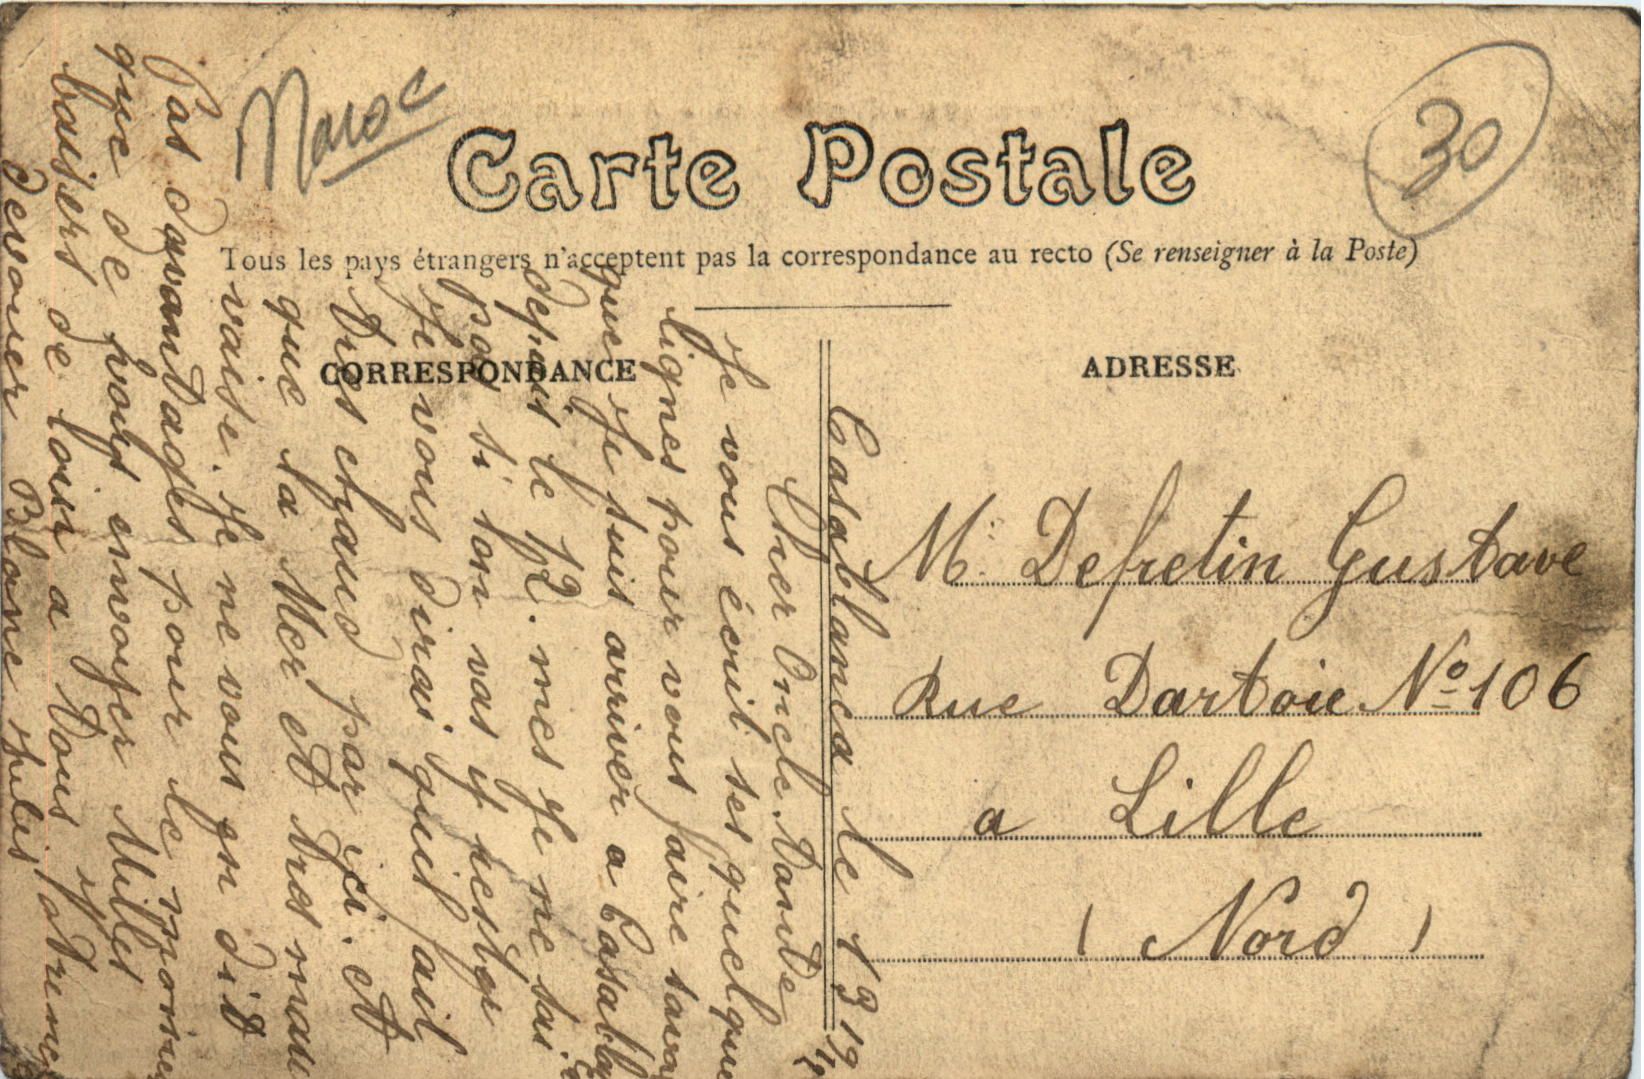 Maroc
30
Carte Postale
Tous les pays étrangers n'acceptent pas la correspondance au recto (Se renseigner à la Poste)
CORRESPONDANCE
ADRESSE
Casablanca le 13
Cher Oncle tante
Je vous écrit ses quelque
lignes pour vous faire savoir
que Je suis arriver a Casabla
depuis le 12. mes Je ne sai
pas si ton vas y rester
Je vous dirai quil fait
très chaud par ici. et
que la Mer et tres mau
vaise. Je ne vous en dit
Pas davantages pour le
que de vous envoyer Milles
baisers de loin a tous
devouer
M. Defretin Gustave
Rue Dartois No 106
a Lille
( Nord )